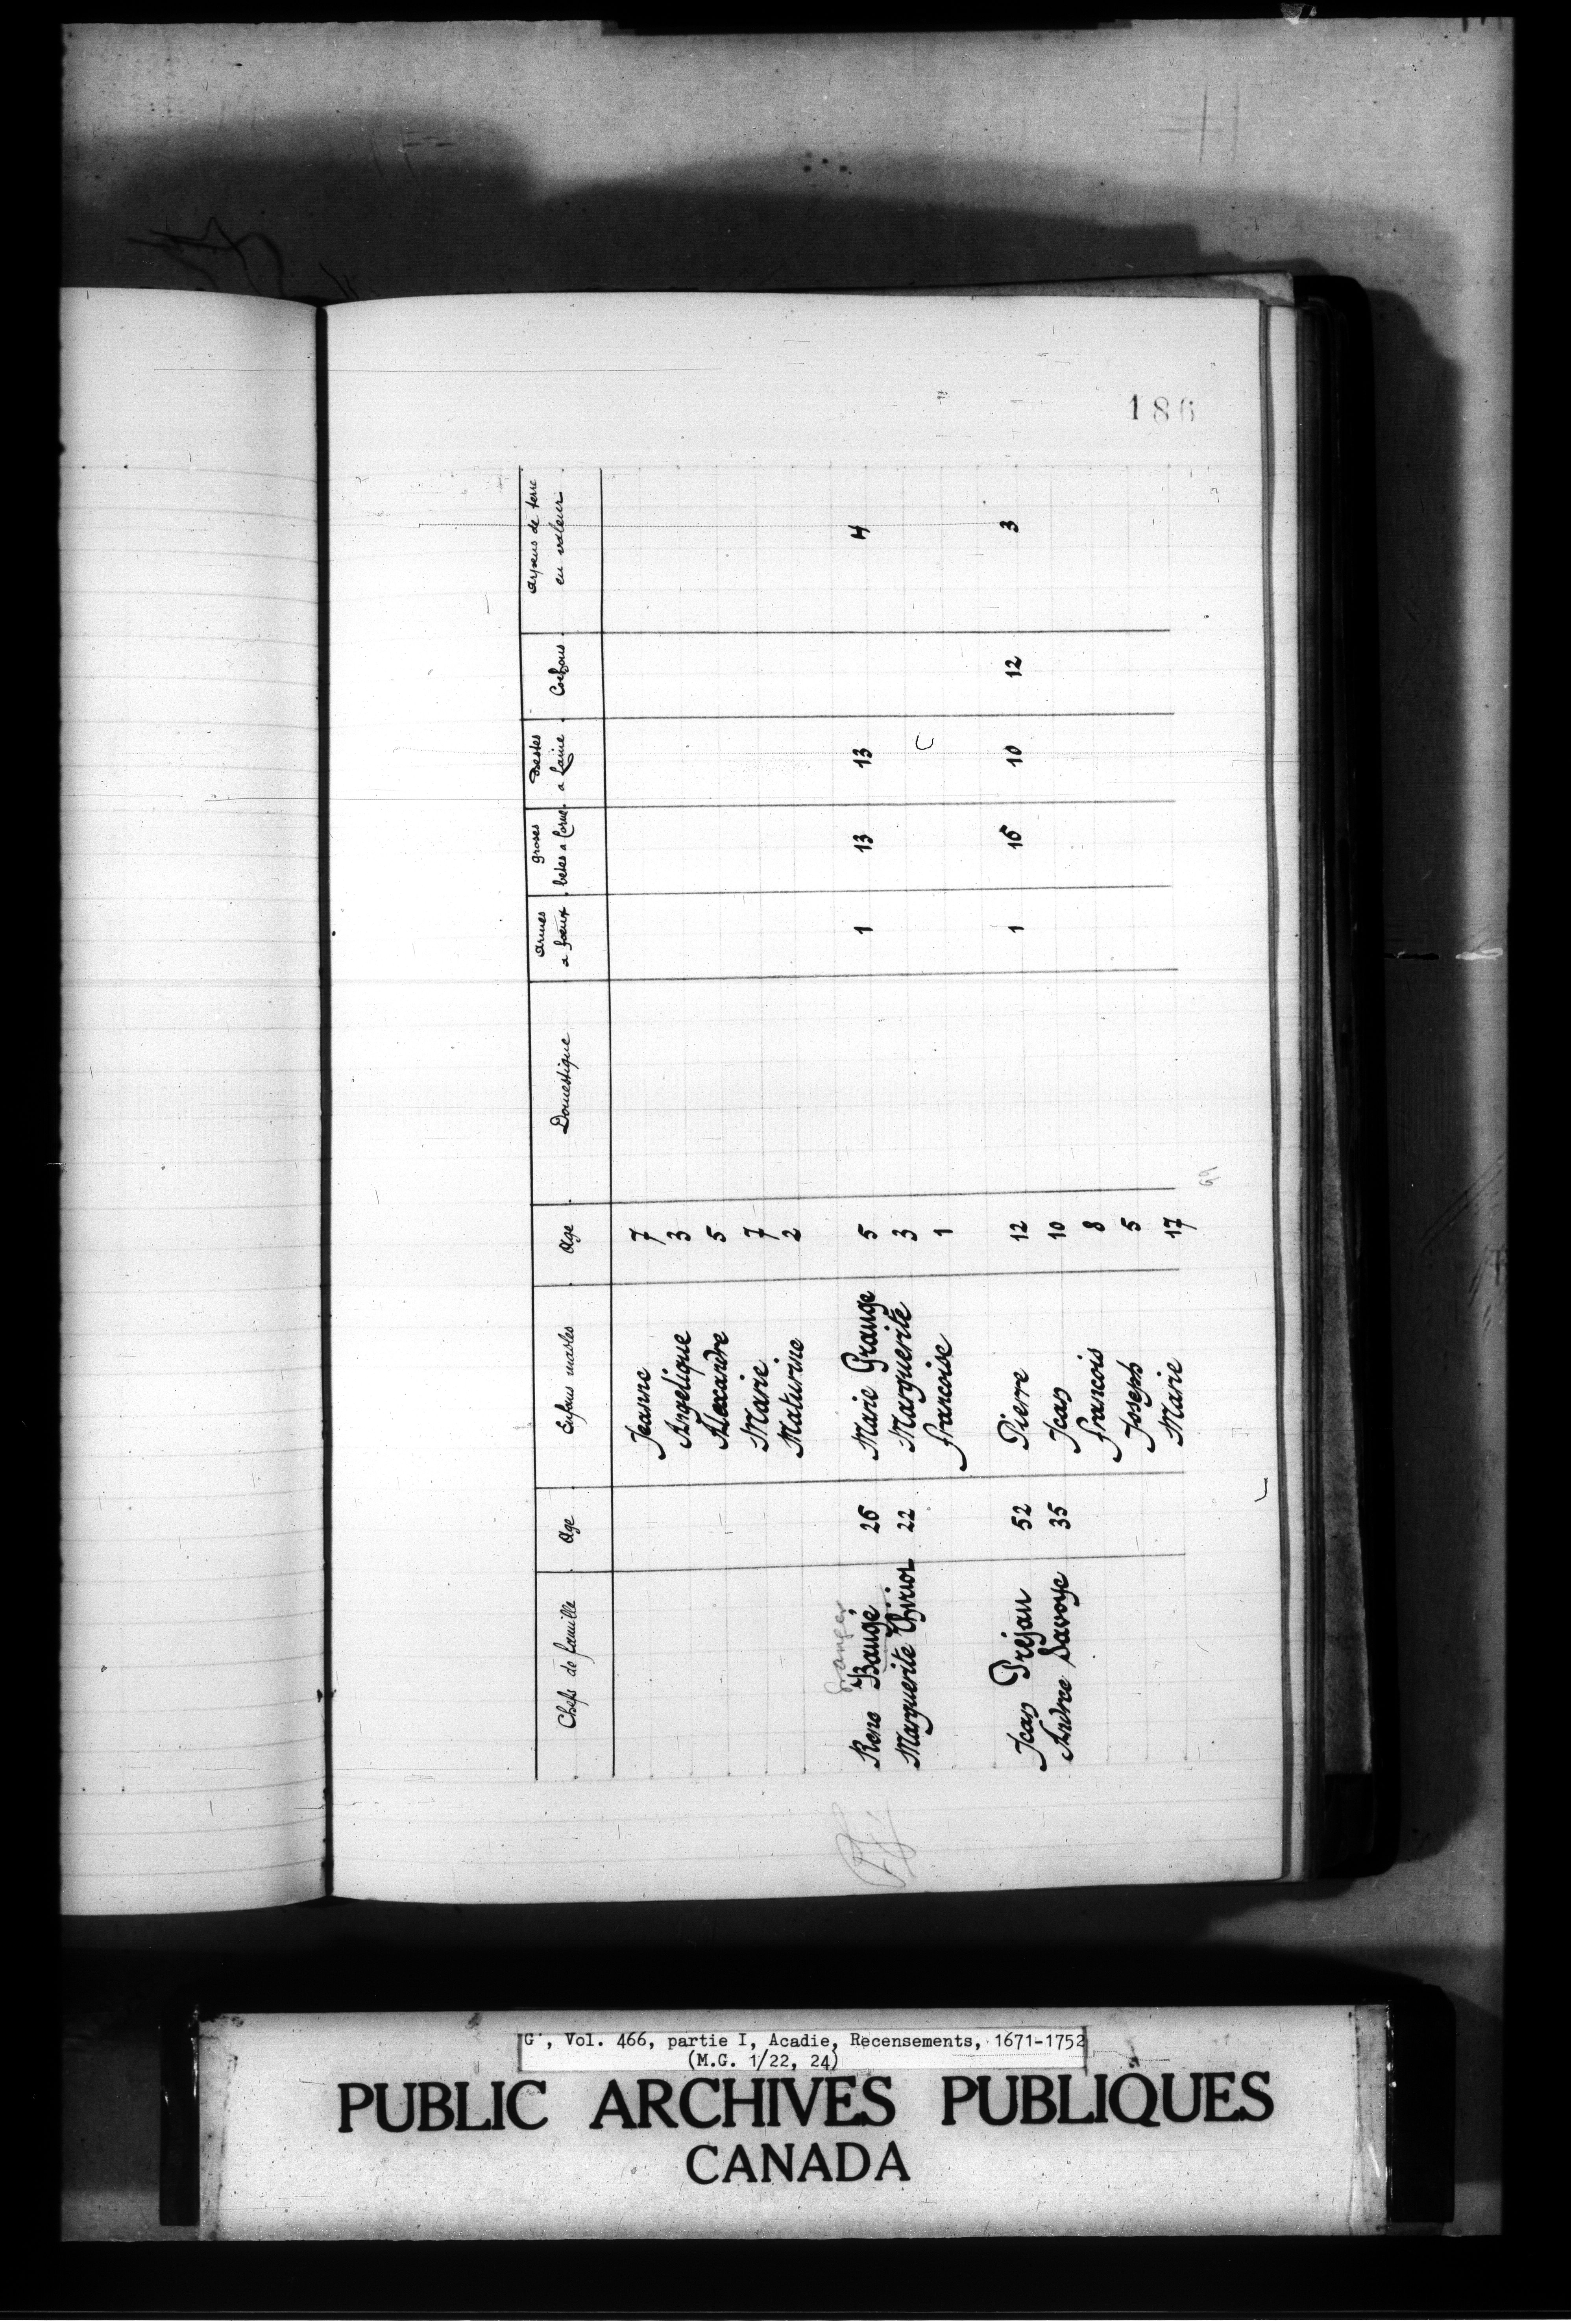 186
Chefs de famille Age Enfans masles Age Domestique armes a feux groses betes a Corne Bestes a Laine Cochons arpens de terre en valeur
Jeanne 7
Angelique 3
Alexandre 5
Marie 7
Maturine 2
Granger
Rene Baugé 26 Marie Grange 5 1 13 13 4
Marguerite Thiriot 22 Marguerite 3
francoise 1
Jean Préjan 52 Pierre 12 1 16 10 12 3
Andree Savoye 35 Jean 10
francois 8
Joseph 5
Marie 17
G', Vol. 466, partie I, Acadie, Recensements, 1671-1752
(M.G. 1/22, 24)
PUBLIC ARCHIVES PUBLIQUES
CANADA